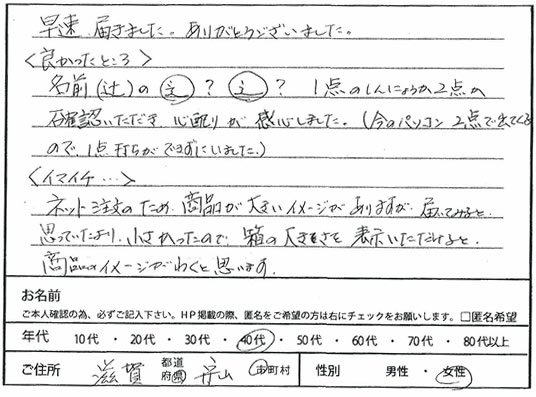 早速 届きました。ありがとうございました。
<良かったところ>
名前(辻)の 辶 ? 辶 ? 1点のしんにょうか2点か
確認いただき 心配りが 感心しました。(今のパソコン 2点で出てくる
ので、1点打ちができずにいました。)
<イマイチ…>
ネット注文のため 商品が大きいイメージがありますが、届いてみると、
思っていたより、小さかったので、箱の大きさを 表示いただけると、
商品のイメージがわくと思います。
お名前
ご本人確認の為、必ずご記入下さい。HP掲載の際、匿名をご希望の方は右にチェックをお願いします。□匿名希望
年代 10代 ・ 20代 ・ 30代 ・ 40代 ・ 50代 ・ 60代 ・ 70代 ・ 80代以上
ご住所 滋賀 都道府県 市町村 性別 男性 ・ 女性